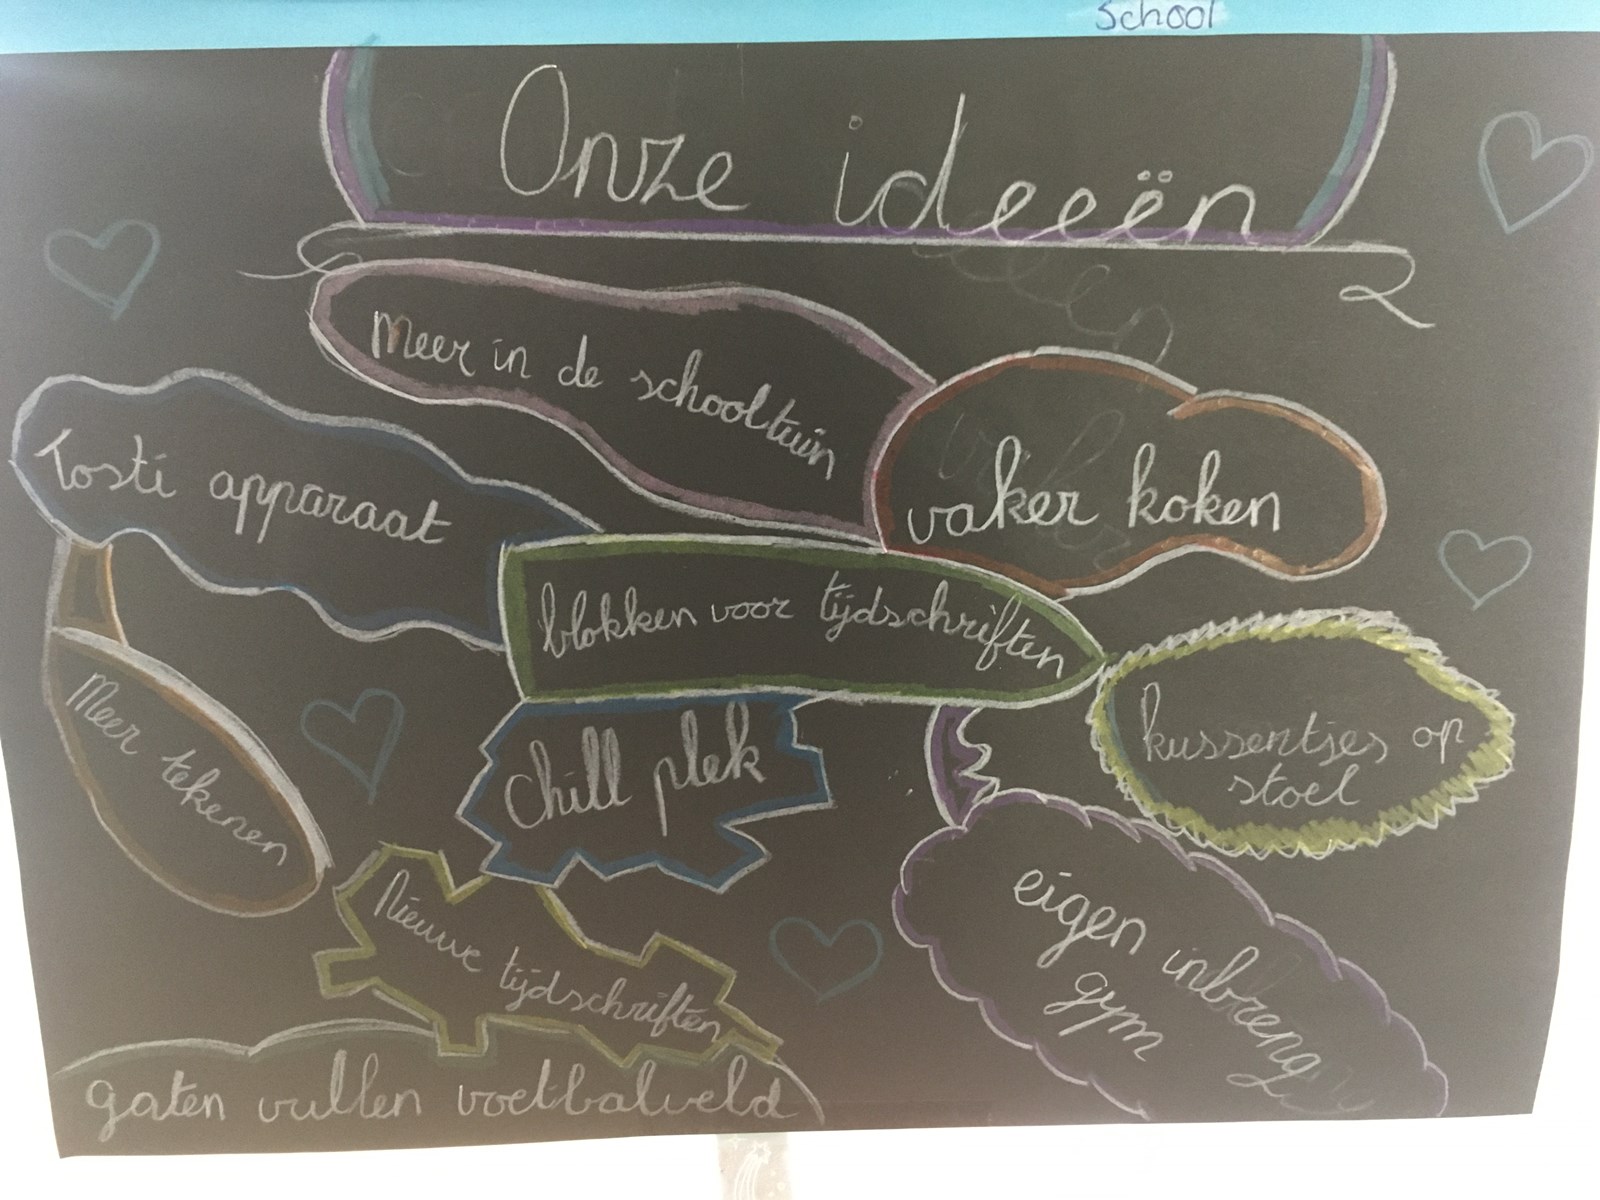 School
Onze ideeën
Meer in de schooltuin
Tosti apparaat
vaker koken
blokken voor tijdschriften
Meer tekenen
chill plek
kussentjes op
stoel
Nieuwe tijdschriften
eigen inbreng
gym
gaten vullen voetbalveld